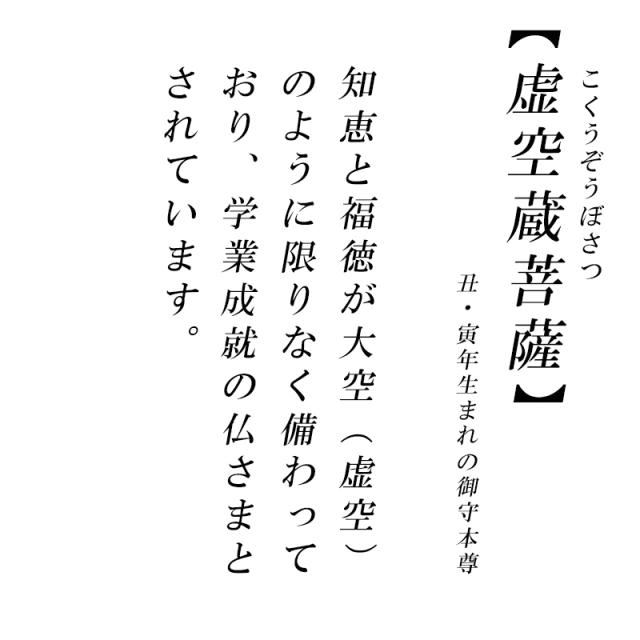 こくうぞうぼさつ
【虚空蔵菩薩】
丑・寅年生まれの御守本尊
知恵と福徳が大空（虚空）
のように限りなく備わって
おり、学業成就の仏さまと
されています。